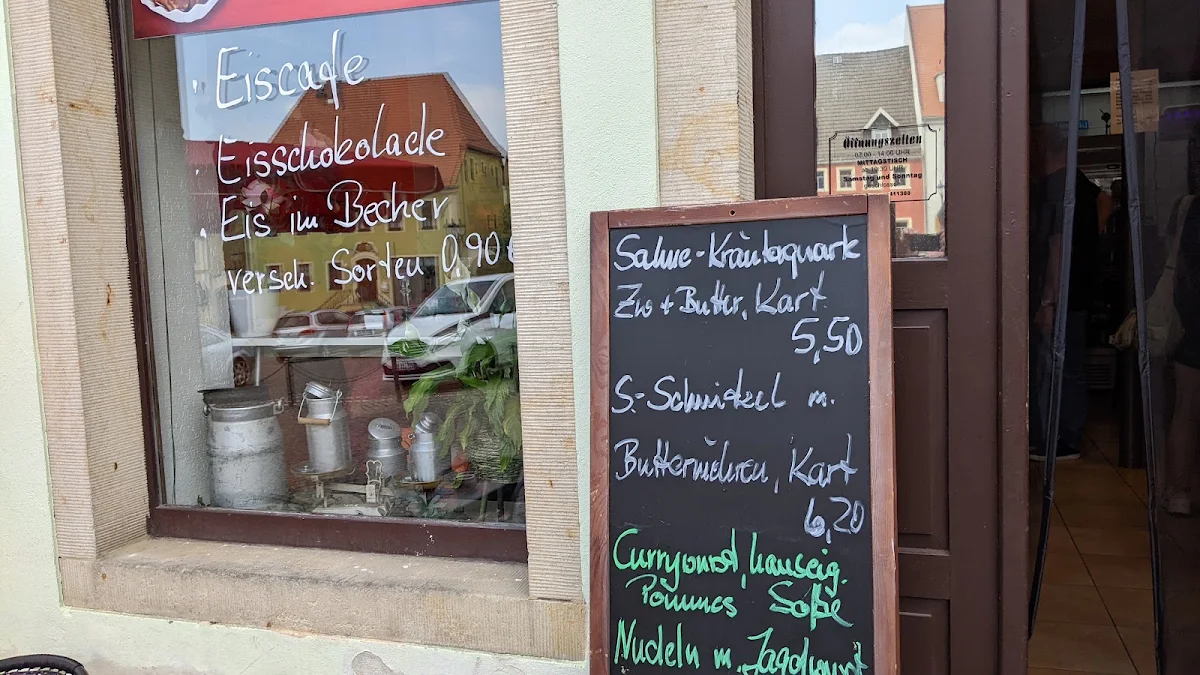 · Eiscafe
· Eisschokolade
· Eis im Becher
versch. Sorten 0,90 €
Öffnungszeiten
07:00 - 14:00 UHR
MITTAGSTISCH
ab 10:30 UHR
Samstag und Sonntag
geschlossen
Sahne-Kräuterquark
Zw + Butter, Kart.
5,50
S.-Schnitzel m.
Buttermöhren, Kart
6,20
Currywurst, hauseig.
Pommes Soße
Nudeln m. Jagdwurst